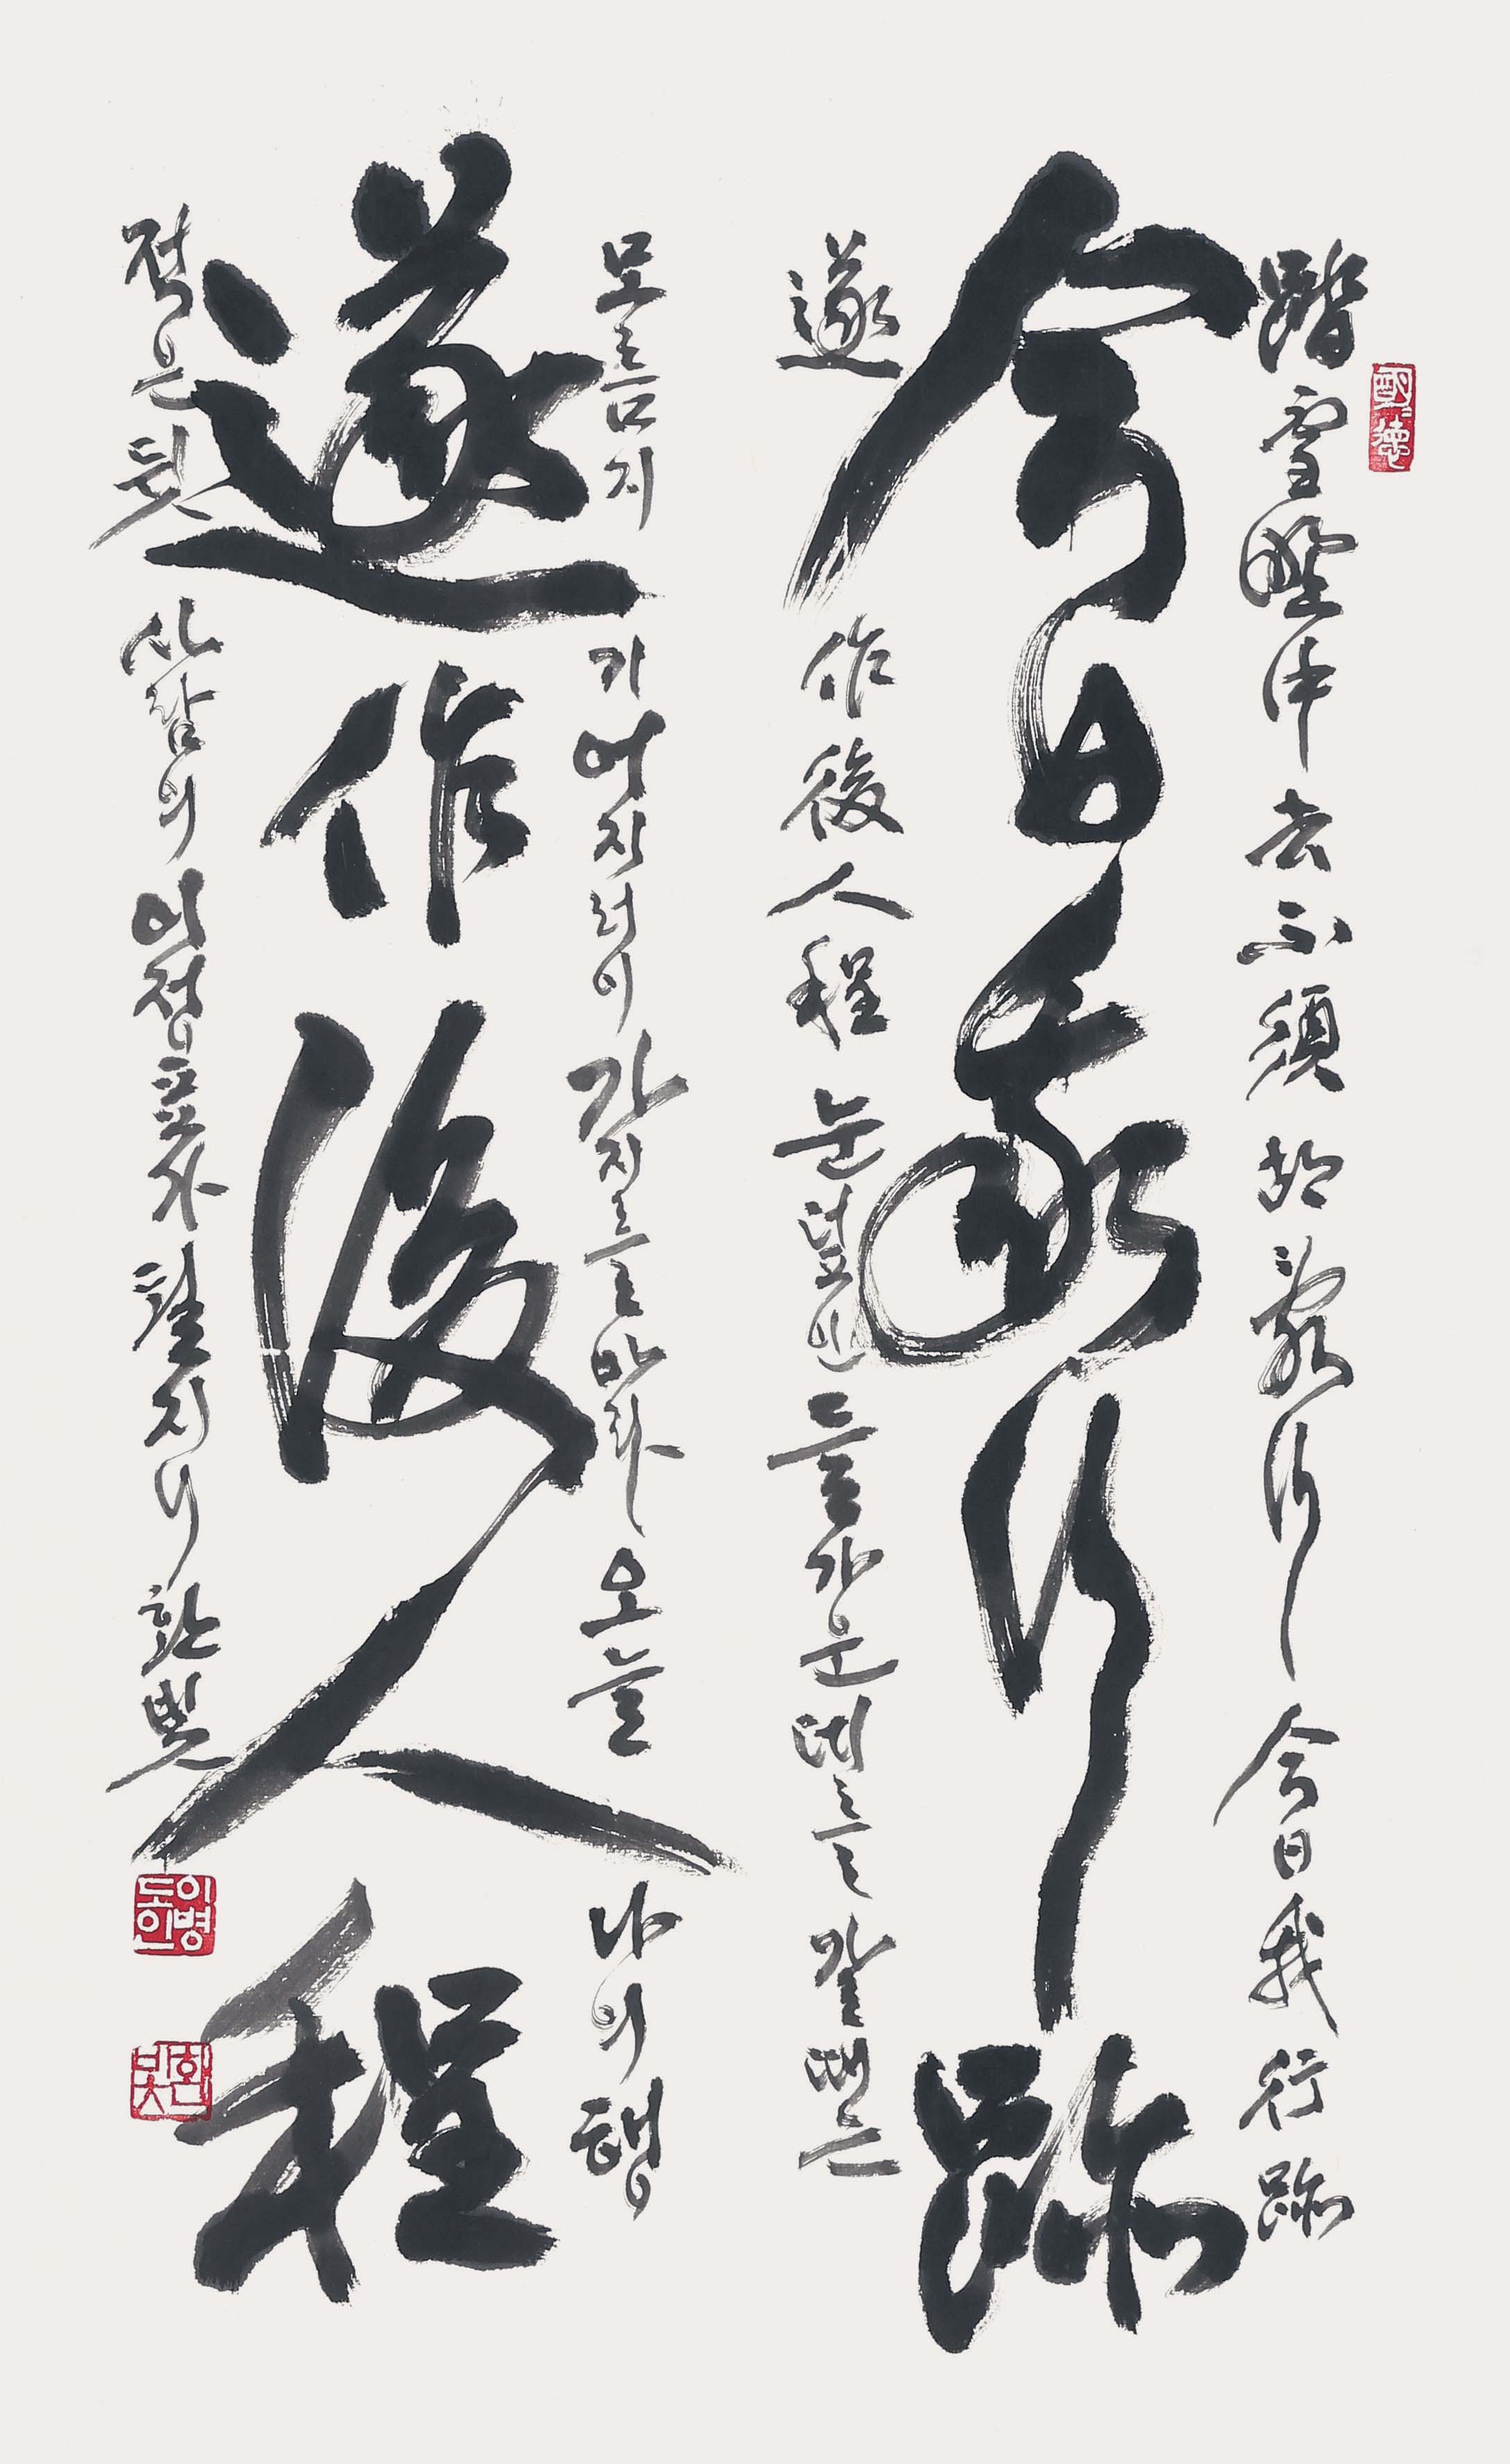 明德
踏雪野中去不須胡亂行今日我行跡
今日我行跡
遂作後人程 눈덮인들가운데를갈때는
모름지기어지러이걷지를마라오늘나의행
遂作後人程
적은뒷사람의이정표가될지니 한빛
이병도인
한빛